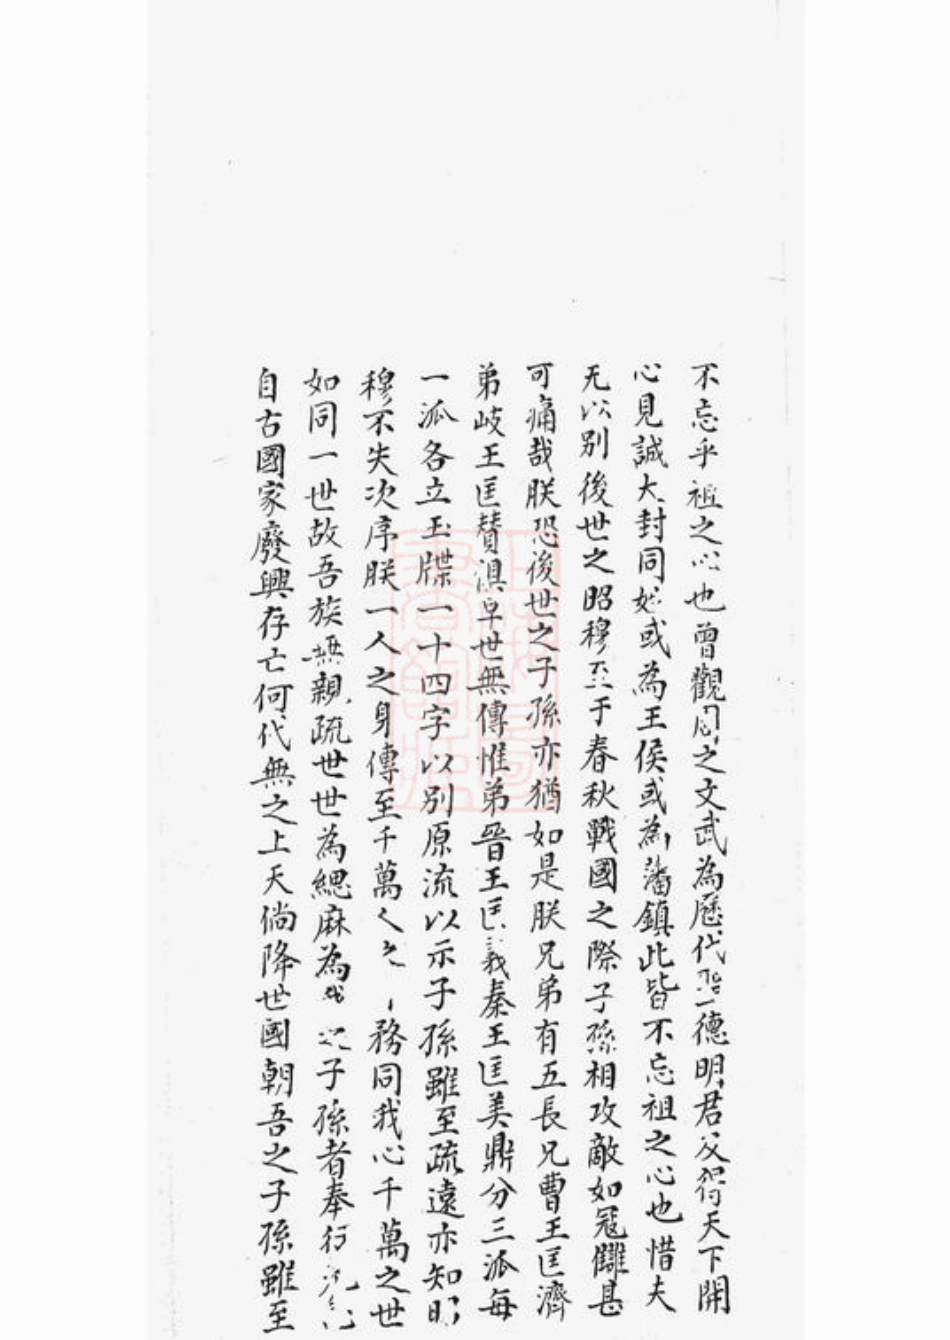 不忘乎祖之心也曾觀周之文武為歷代聖德明君父得天下開
心見誠大封同姓或為王侯或為藩鎮此皆不忘祖之心也惜夫
无以別後世之昭穆至于春秋戰國之際子孫相攻敵如冦讎甚
可痛哉朕恐後世之子孫亦猶如是朕兄弟有五長兄曹王匡濟
弟岐王匡贊俱早世無傳惟弟晉王匡義秦王匡美鼎分三派每
一派各立玉牒一十四字以別原流以示子孫雖至疏遠亦知昭
穆不失次序朕一人之身傳至千萬人之務同我心千萬之世
如同一世故吾族無親疏世世為緦麻為我之子孫者奉行
自古國家廢興存亡何代無之上天倘降世國朝吾之子孫雖至